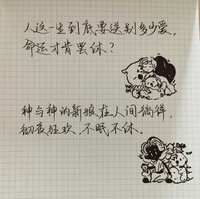 人这一生到底要送别多少爱,
命运才肯罢休?
神与神的新娘,在人间徜徉,
彻夜狂欢、不眠不休。